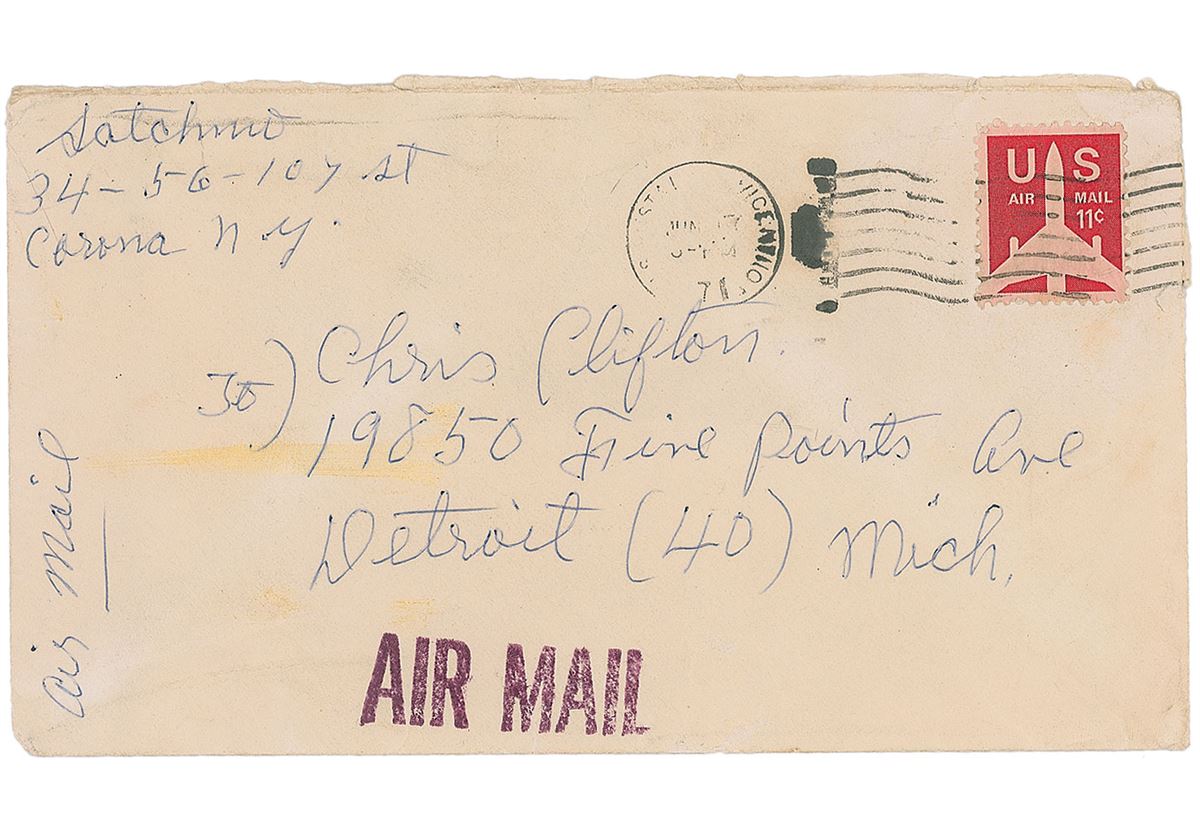 Satchmo
34-56-107 St
Corona N.Y.
JUN 17
71
US
AIR MAIL
11¢
To) Chris Clifton.
19850 Five Points Ave
Detroit (40) Mich.
Air Mail
AIR MAIL